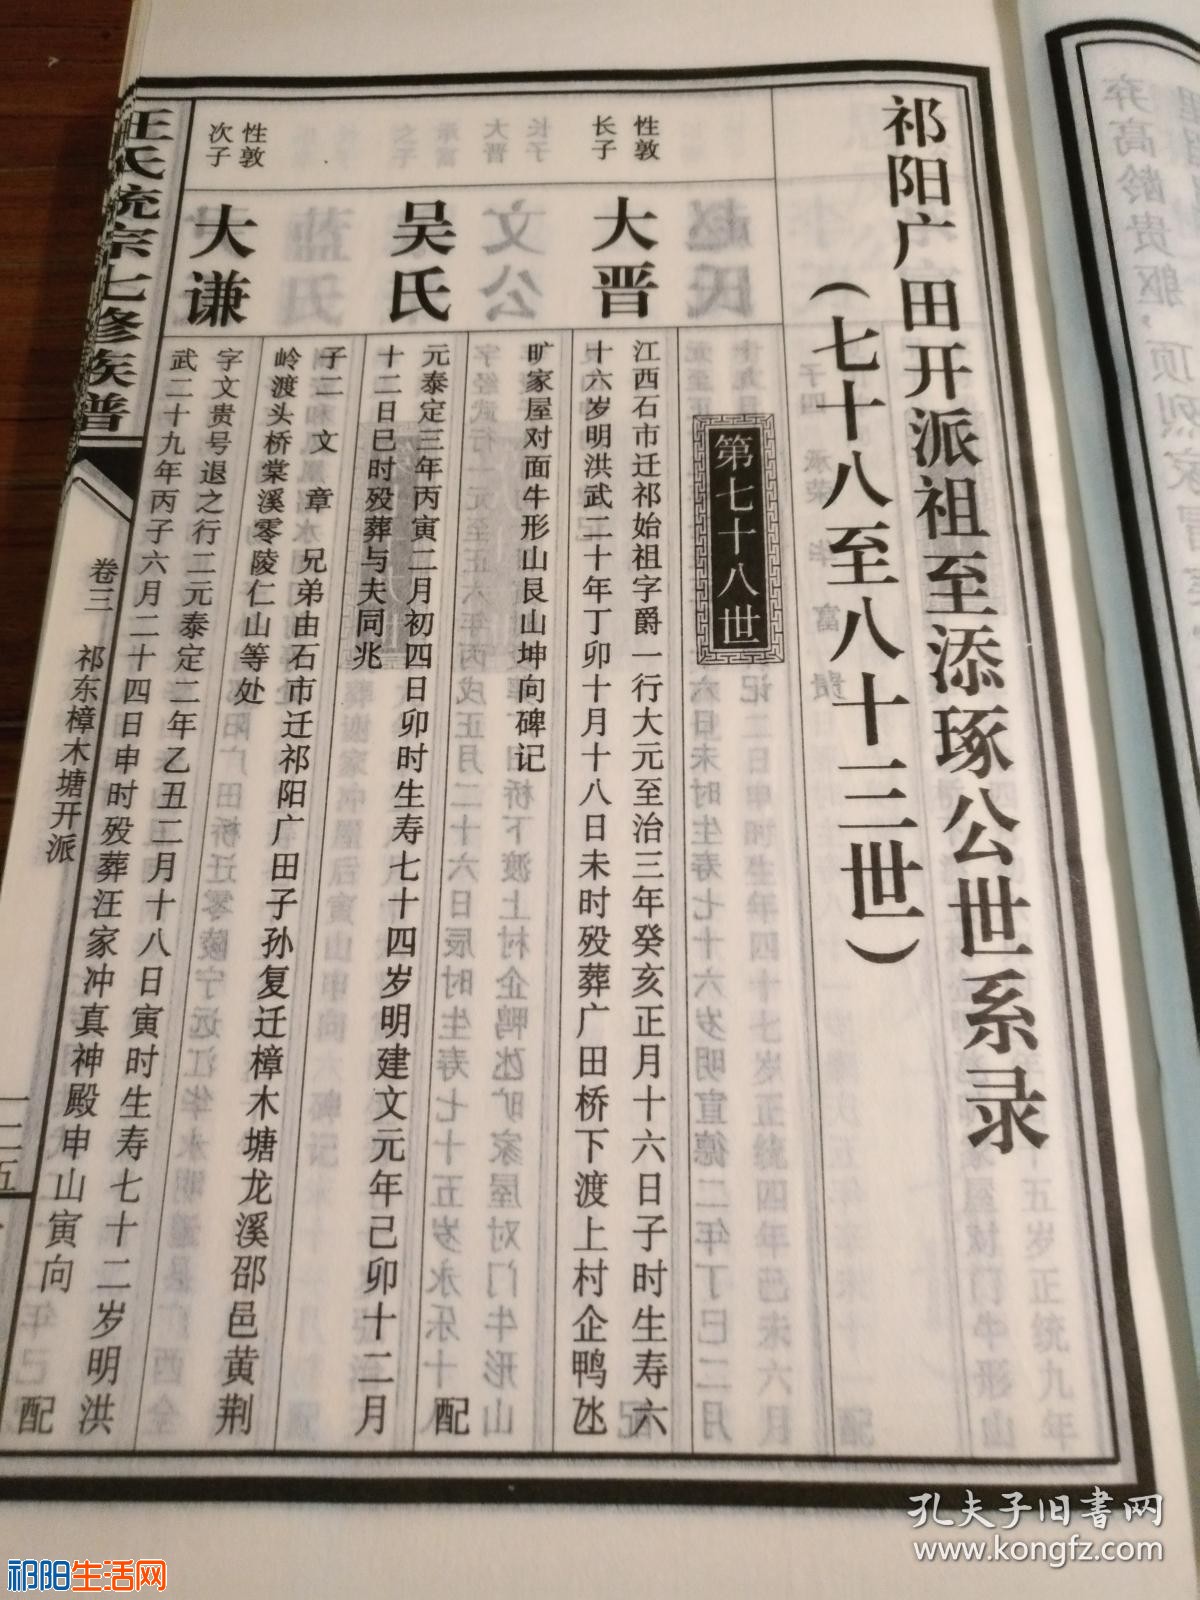 祁阳广田开派祖至添琢公世系录
（七十八至八十三世）
第七十八世
性敦
长子
大晋
江西石市迁祁始祖字爵一行大元至治三年癸亥正月十六日子时生寿六
十六岁明洪武二十年丁卯十月十八日未时殁葬广田桥下渡上村企鸭氹
旷家屋对面牛形山艮山坤向碑记
配
吴氏
元泰定三年丙寅二月初四日卯时生寿七十四岁明建文元年己卯十二月
十二日巳时殁葬与夫同兆
子二 文 章 兄弟由石市迁祁阳广田子孙复迁樟木塘龙溪邵邑黄荆
岭渡头桥棠溪零陵仁山等处
性敦
次子
大谦
字文贵号退之行二元泰定二年乙丑二月十八日寅时生寿七十二岁明洪
武二十九年丙子六月二十四日申时殁葬汪家冲真神殿申山寅向
配
汪氏统宗七修族谱
卷三
祁东樟木塘开派
一二五
弃高龄贵躯，顶烈
孔夫子旧书网
www.kongfz.com
祁阳生活网